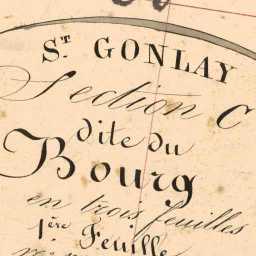 S.T GONLAY
Section C
dite du
Bourg
en trois feuilles
1ère Feuille